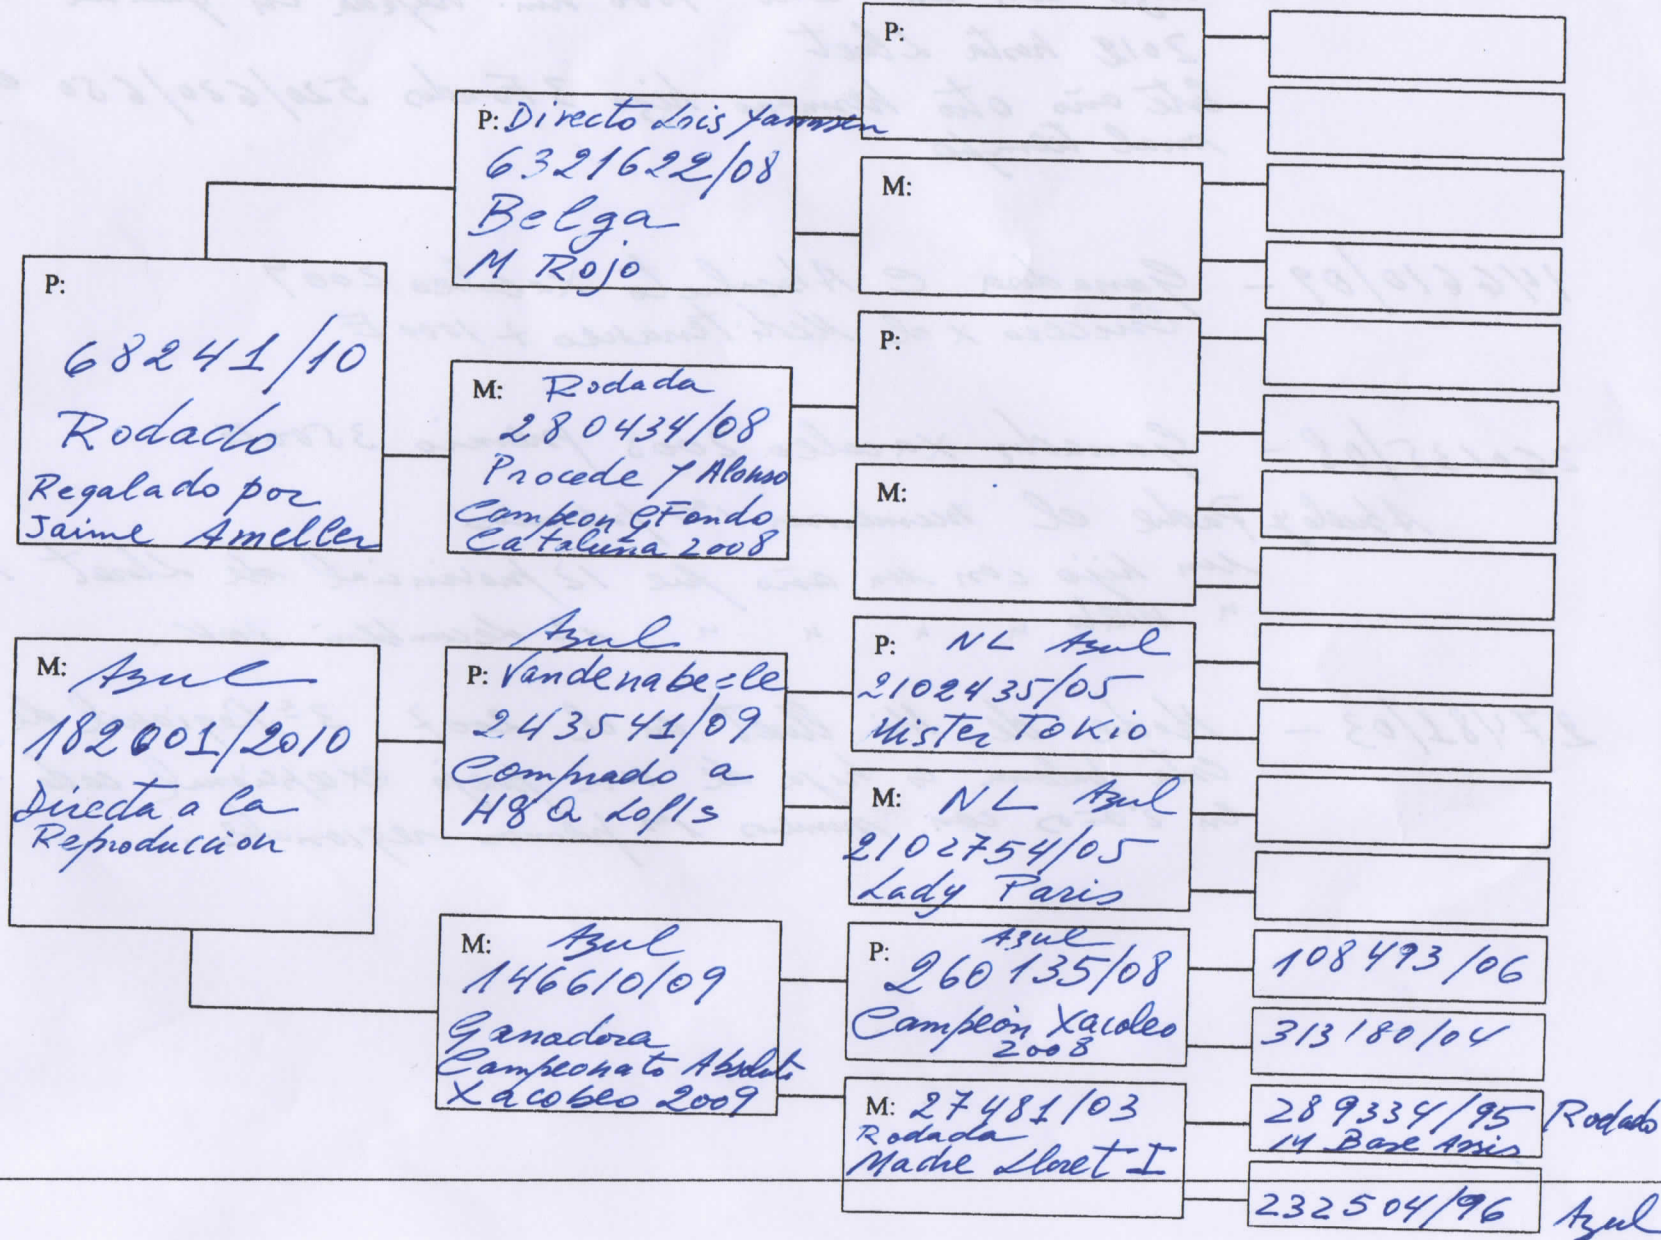 P:
68241/10
Rodado
Regalado por
Jaime Ameller
M: Azul
182001/2010
Directa a la
Reproduccion
P: Directo Lois Yanssen
6321622/08
Belga
M Rojo
M: Rodada
280434/08
Procede Y Alonso
Campeon GFondo
Cataluña 2008
Azul
P: Vandenabeele
243541/09
Comprado a
H&Q Lofts
M: Azul
146610/09
Ganadora
Campeonato Absoluto
Xacobeo 2009
P:
M:
P:
M:
P: NL Azul
2102435/05
Mister Tokio
M: NL Azul
2102754/05
Lady Paris
P: Azul
260135/08
Campeón Xacobeo
2008
M: 27481/03
Rodada
Madre Lloret I
108493/06
313180/04
289334/95 Rodado
M Base
232504/96 Azul